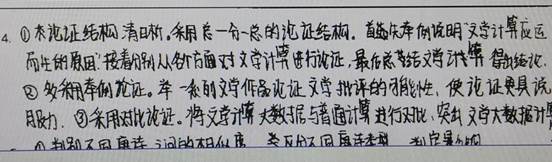 4. ①本论证结构清晰,采用总一分一总的论证结构。首先举例说明"文学计算应运
而生的原因"接着分别从各方面对文学计算进行论证,最后总结文学计算得出结论。
②多采用举例论证。举一系列文学作品论证文学批评的可能性,使论证更具说
服力。③采用对比论证。将文学计算大数据与普通计算进行对比,突出文学大数据计